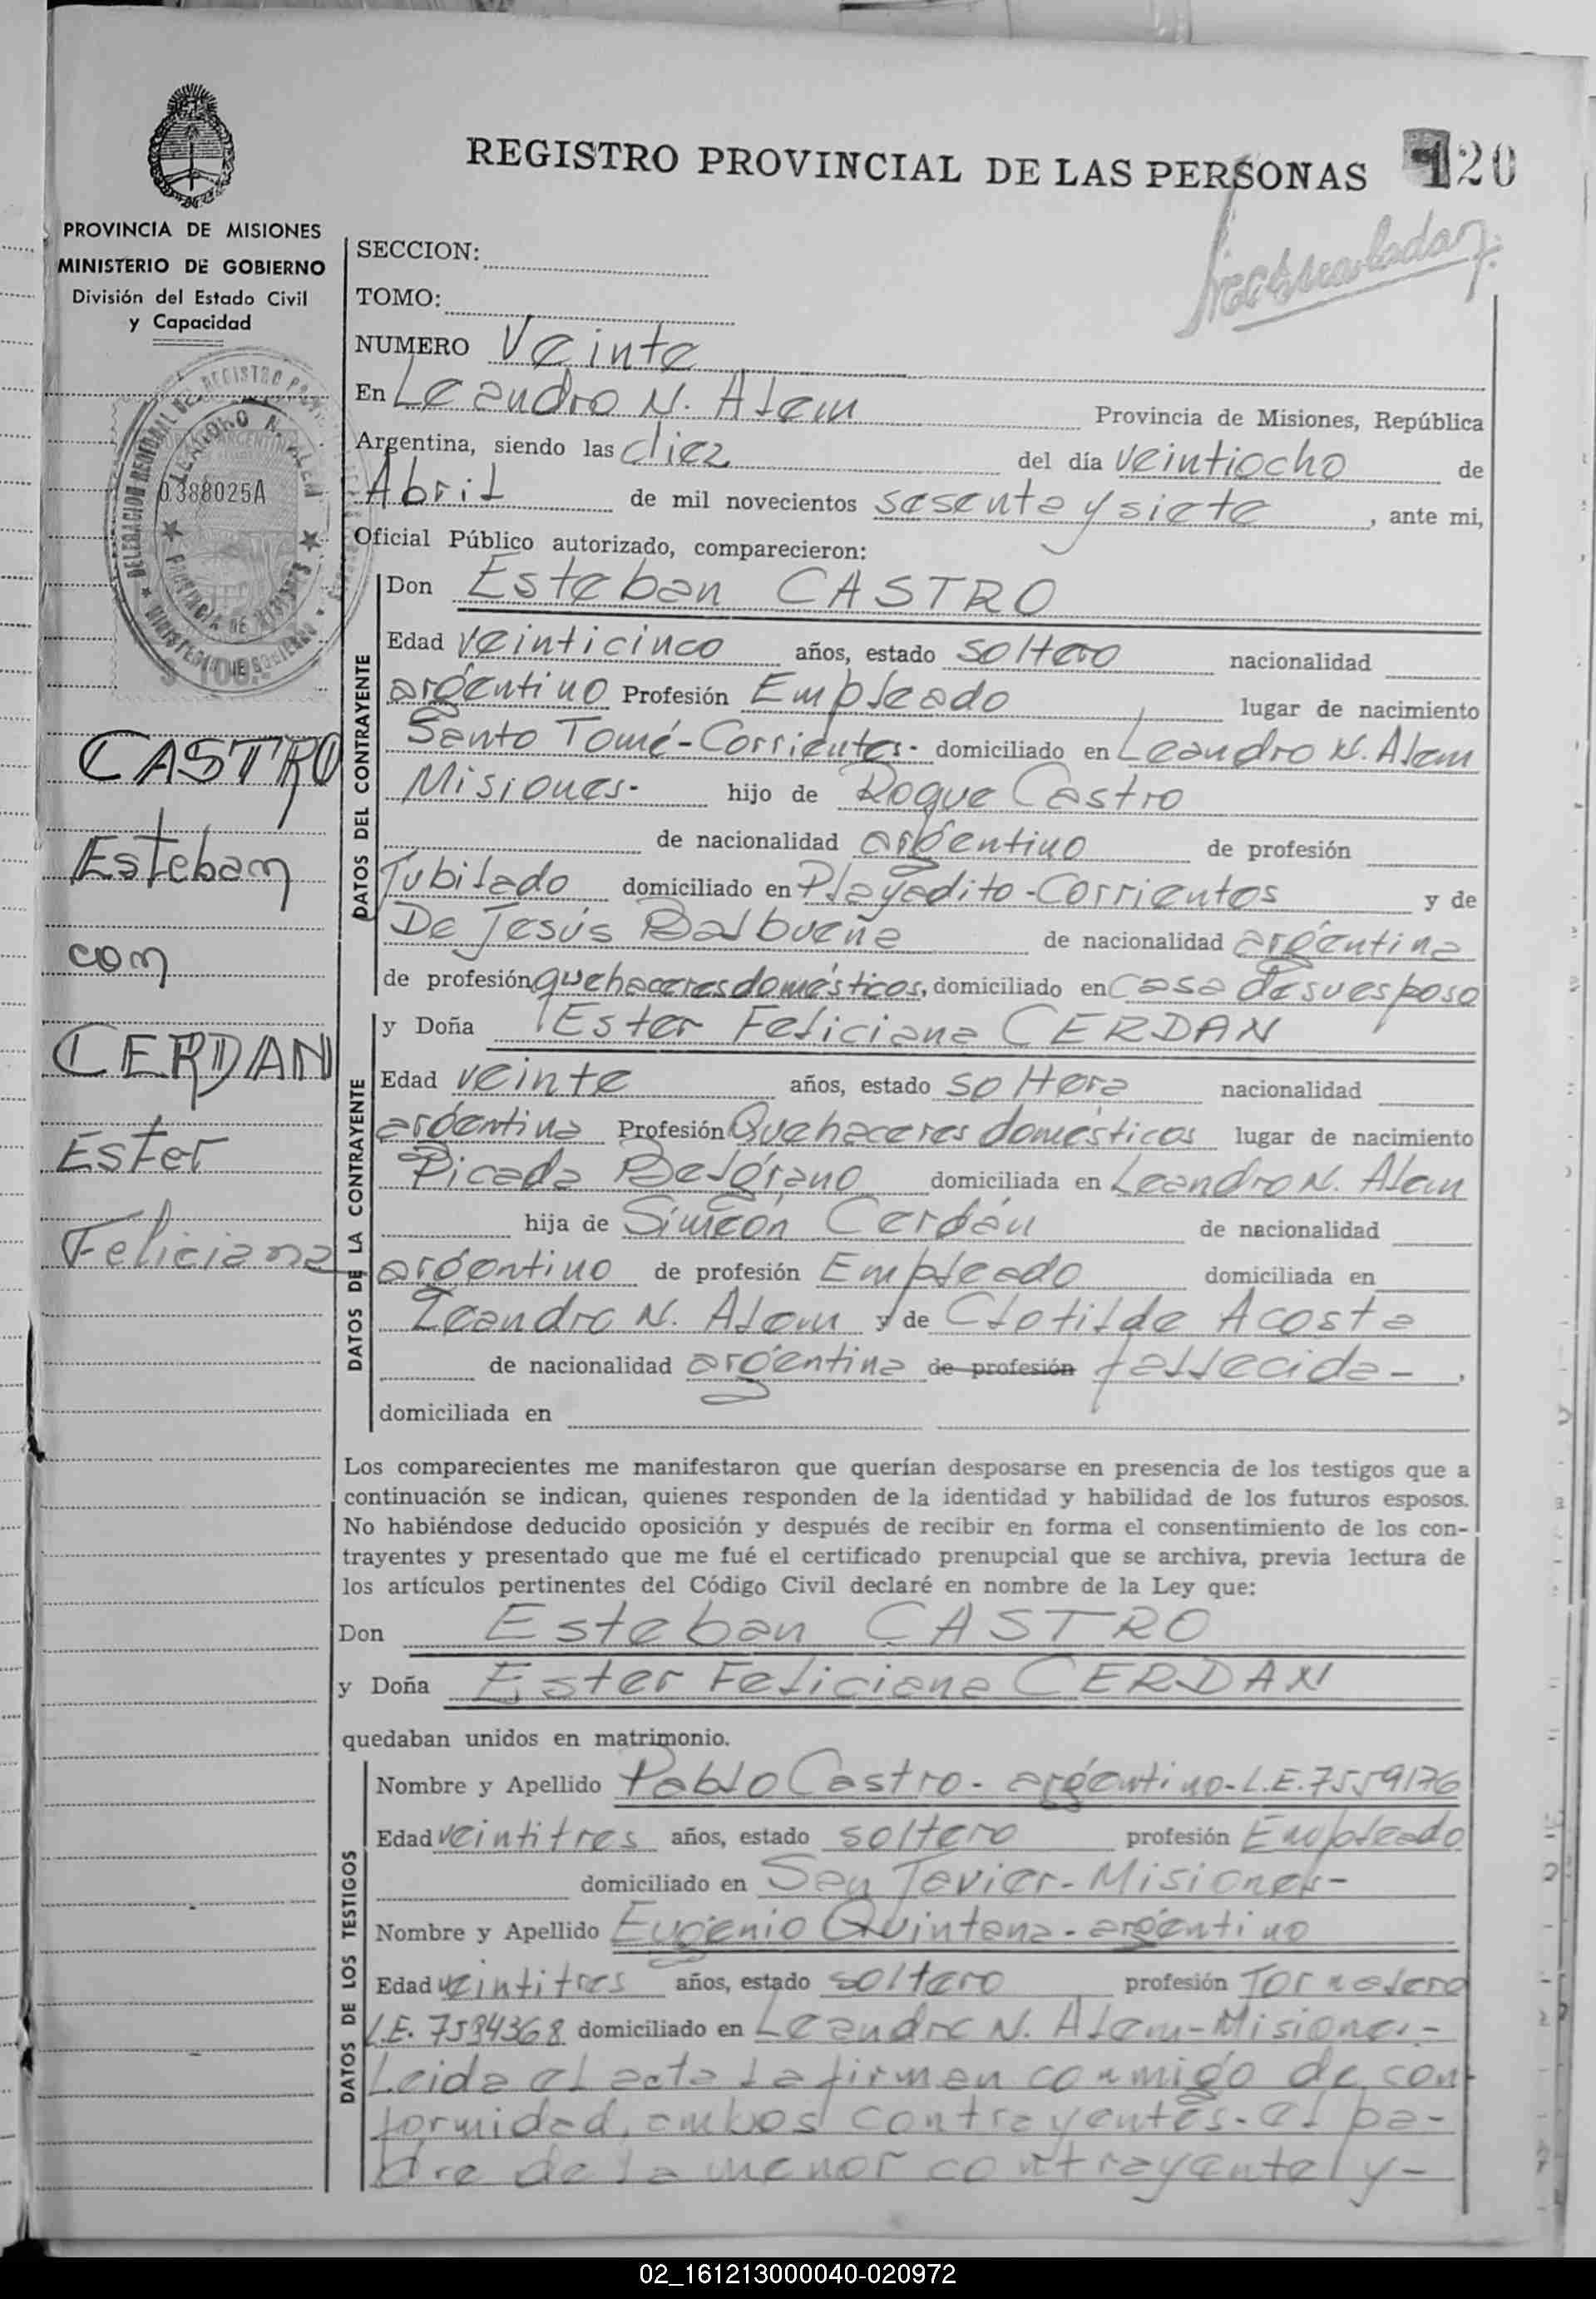 REGISTRO PROVINCIAL DE LAS PERSONAS 120
PROVINCIA DE MISIONES
MINISTERIO DE GOBIERNO
División del Estado Civil
y Capacidad
0388025A
CASTRO
Esteban
con
CERDAN
Ester
Feliciana
SECCION:
TOMO:
NUMERO Veinte
En Leandro N. Alem Provincia de Misiones, República
Argentina, siendo las diez del día veintiocho de
Abril de mil novecientos sesenta y siete, ante mi,
Oficial Público autorizado, comparecieron:
DATOS DEL CONTRAYENTE
Don Esteban CASTRO
Edad veinticinco años, estado soltero nacionalidad
argentino Profesión Empleado lugar de nacimiento
Santo Tomé-Corrientes- domiciliado en Leandro N. Alem
Misiones- hijo de Roque Castro
de nacionalidad argentino de profesión
Jubilado domiciliado en Playadito-Corrientes y de
De Jesús Balbueña de nacionalidad argentina
de profesión quehaceres domésticos, domiciliado en casa de su esposo
DATOS DE LA CONTRAYENTE
y Doña Ester Feliciana CERDAN
Edad veinte años, estado soltera nacionalidad
argentina Profesión Quehaceres domésticos lugar de nacimiento
Picada Belgrano domiciliada en Leandro N. Alem
hija de Simeón Cerdán de nacionalidad
argentino de profesión Empleado domiciliada en
Leandro N. Alem y de Clotilde Acosta
de nacionalidad argentina de profesión fallecida-,
domiciliada en
Los comparecientes me manifestaron que querían desposarse en presencia de los testigos que a
continuación se indican, quienes responden de la identidad y habilidad de los futuros esposos.
No habiéndose deducido oposición y después de recibir en forma el consentimiento de los con-
trayentes y presentado que me fué el certificado prenupcial que se archiva, previa lectura de
los artículos pertinentes del Código Civil declaré en nombre de la Ley que:
Don Esteban CASTRO
y Doña Ester Feliciana CERDAN
quedaban unidos en matrimonio.
DATOS DE LOS TESTIGOS
Nombre y Apellido Pablo Castro- argentino-L.E.7559176
Edad veintitres años, estado soltero profesión Empleado
domiciliado en San Javier-Misiones-
Nombre y Apellido Eugenio Quintana-argentino
Edad veintitres años, estado soltero profesión Tornalero
L.E. 7594368 domiciliado en Leandro N. Alem-Misiones-
Leida el acta la firman conmigo de con-
formidad, ambos contrayentes-el pa-
dre de la menor contrayente y-
02_161213000040-020972